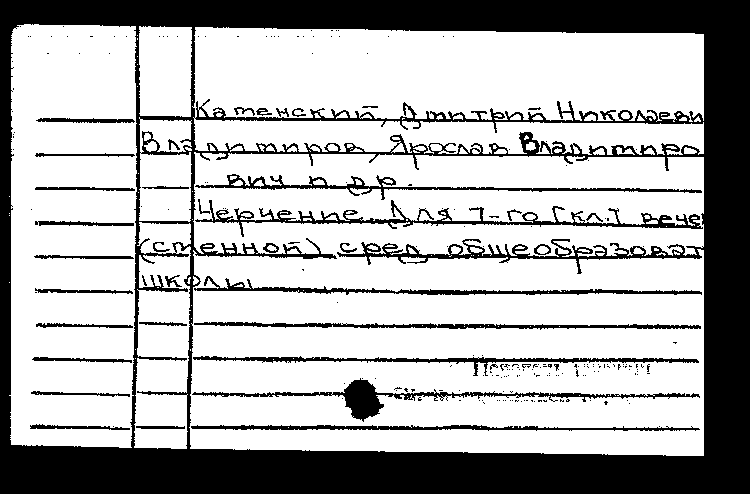 Каменский, Дмитрий Николаеви
Владимиров, Ярослав Владимиро
вич и др.
Черчение. Для 7-го [кл.] вече
(сменной) сред. общеобразоват
школы